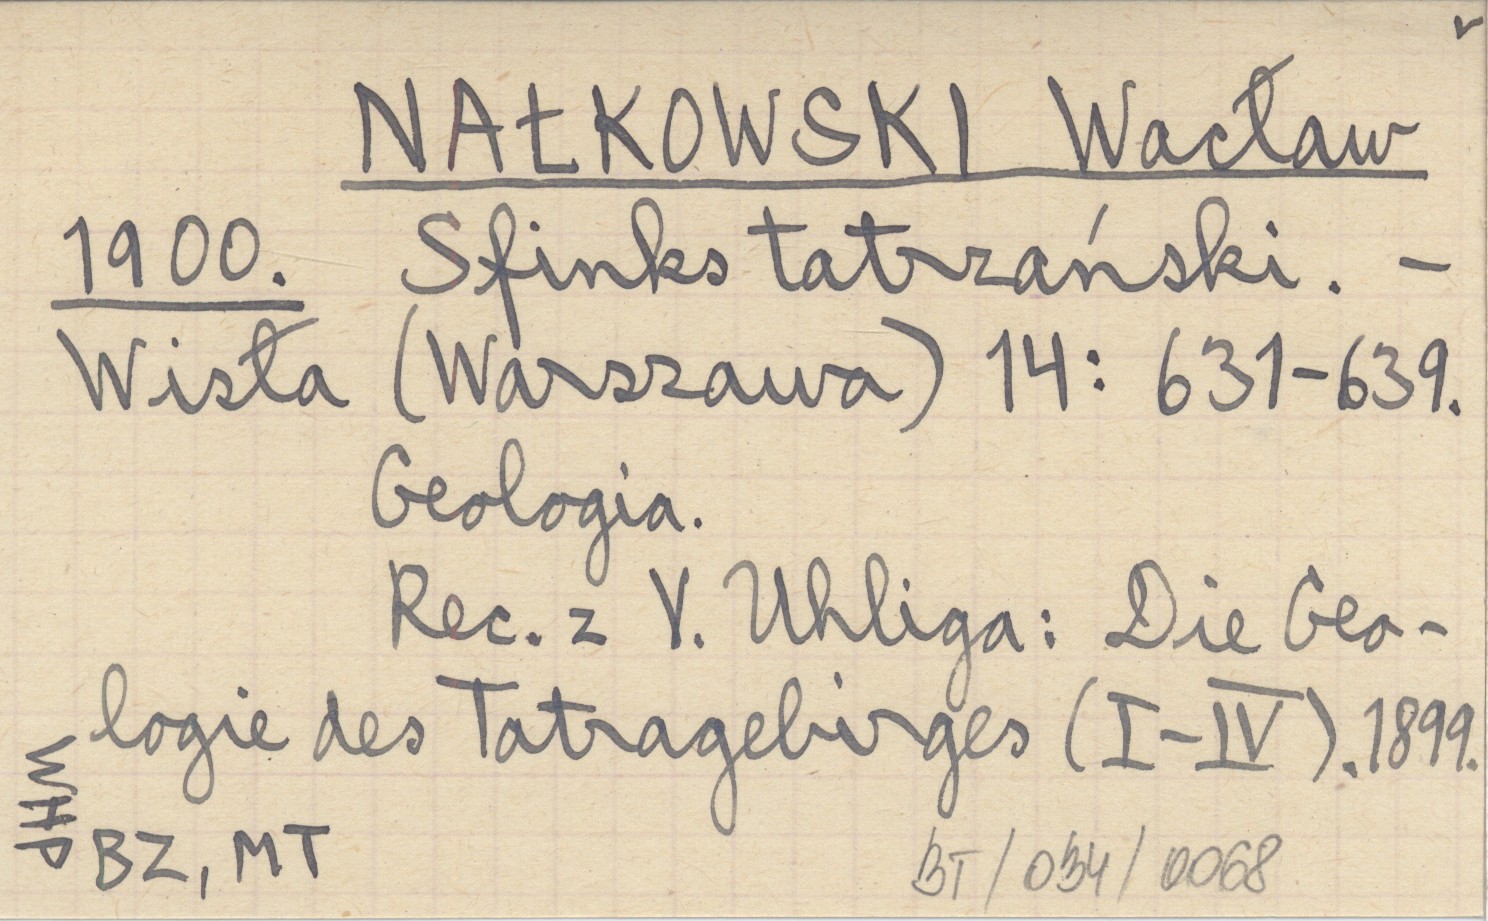 NAŁKOWSKI Wacław
1900. Sfinks tatrzański. -
Wisła (Warszawa) 14: 631-639.
Geologia.
Rec. z V. Uhliga: Die Geo-
logie des Tatragebirges (I-IV). 1899.
WHP
BZ, MT
BT/034/0068